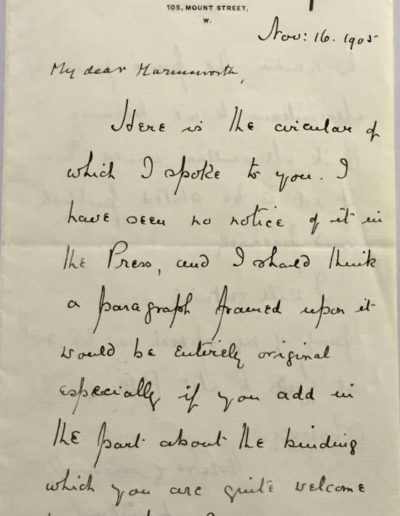 105, MOUNT STREET,
W.
Nov: 16. 1905
My dear Harmsworth,
Here is the circular of
which I spoke to you. I
have seen no notice of it in
the Press, and I should think
a paragraph framed upon it
would be entirely original
especially if you add in
the part about the binding
which you are quite welcome